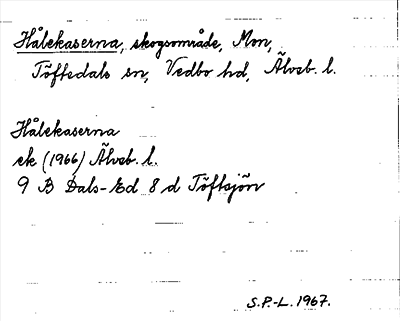 Hålekaserna, skogsområde, Mon,
Töftedals sn, Vedbo hd, Älvsb. l.
Hålekaserna
ek (1966) Älvsb. l.
9 B Dals-Ed 8 d Töftsjön
S.P.-L. 1967.